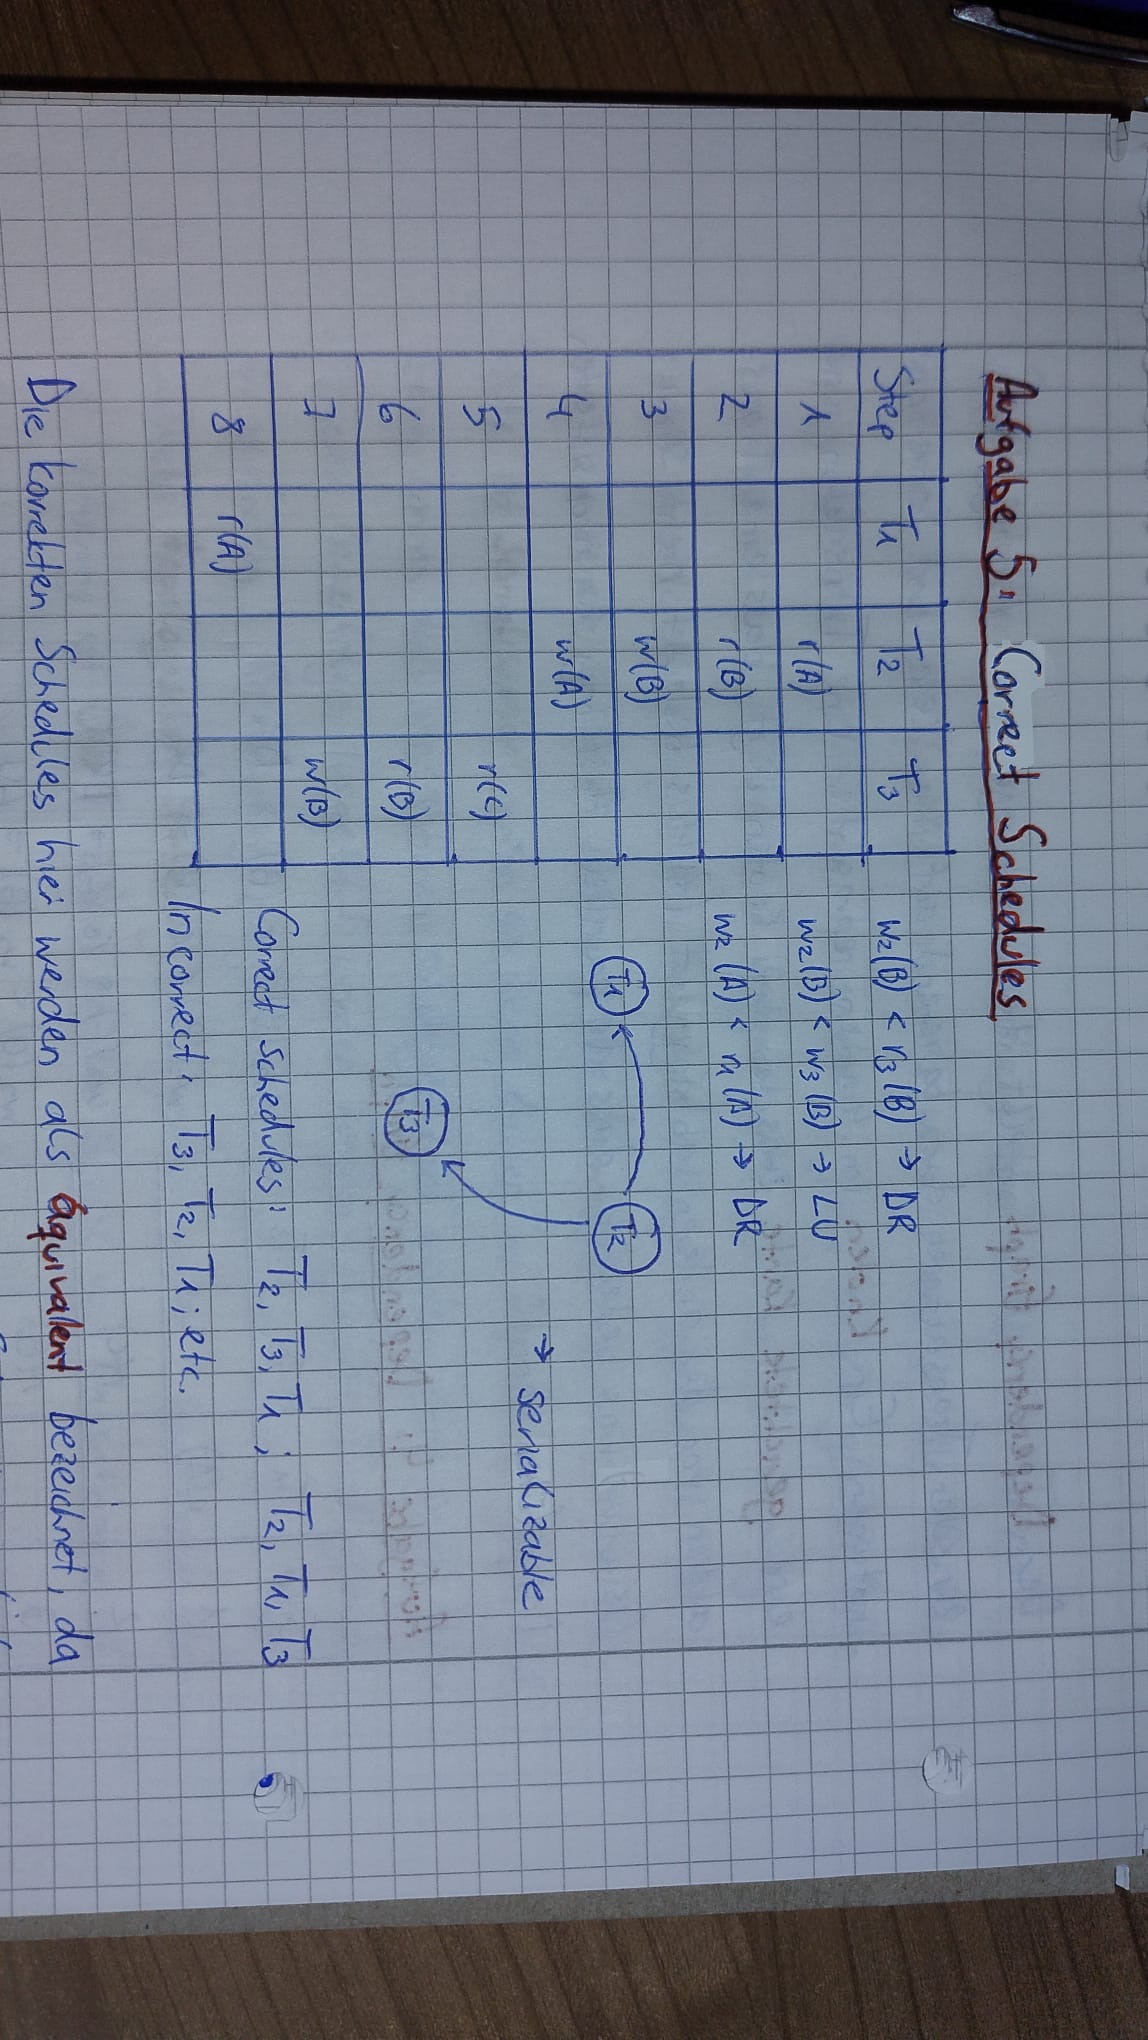 Aufgabe 5: Correct Schedules
Step T1 T2 T3
1 r(A)
2 r(B)
3 w(B)
4 w(A)
5 r(C)
6 r(B)
7 w(B)
8 r(A)
w2(B) < r3(B) → DR
w2(B) < w3(B) → LU
w2(A) < r1(A) → DR
T1 T2
→ serializable
T3
Correct schedules: T2, T3, T1; T2, T1, T3
Incorrect: T3, T2, T1; etc.
Die korrekten Schedules hier werden als äquivalent bezeichnet, da